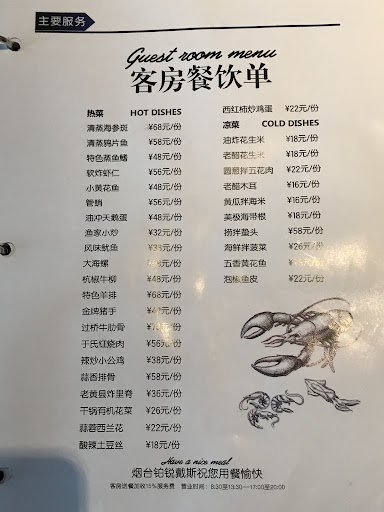 主要服务
Guest room menu
客房餐饮单
热菜 HOT DISHES
清蒸海参斑 ¥68元/份
清蒸鸦片鱼 ¥58元/份
特色蒸鱼鳝 ¥48元/份
软炸虾仁 ¥56元/份
小黄花鱼 ¥48元/份
管蛸 ¥56元/份
油冲天鹅蛋 ¥48元/份
渔家小炒 ¥32元/份
风味鱿鱼 元/份
大海螺 元/份
杭椒牛柳 元/份
特色羊排 ¥68元/份
金牌猪手 元/份
过桥牛肋骨 元/份
于氏红烧肉 ¥56元/份
辣炒小公鸡 ¥38元/份
蒜香排骨 ¥58元/份
老黄县炸里脊 ¥36元/份
干锅有机花菜 ¥26元/份
蒜蓉西兰花 ¥22元/份
酸辣土豆丝 ¥18元/份
西红柿炒鸡蛋 ¥22元/份
凉菜 COLD DISHES
油炸花生米 ¥18元/份
老醋花生米 ¥18元/份
圆葱拌五花肉 ¥22元/份
老醋木耳 ¥16元/份
黄瓜拌海米 ¥16元/份
美极海带根 ¥18元/份
捞拌蛰头 ¥58元/份
海鲜拌菠菜 ¥26元/份
五香黄花鱼 元/份
泡椒鱼皮 ¥22元/份
Have a nice meal
烟台铂锐戴斯祝您用餐愉快
客房送餐加收15%服务费 营业时间：8:30至13:30—17:00至20:00